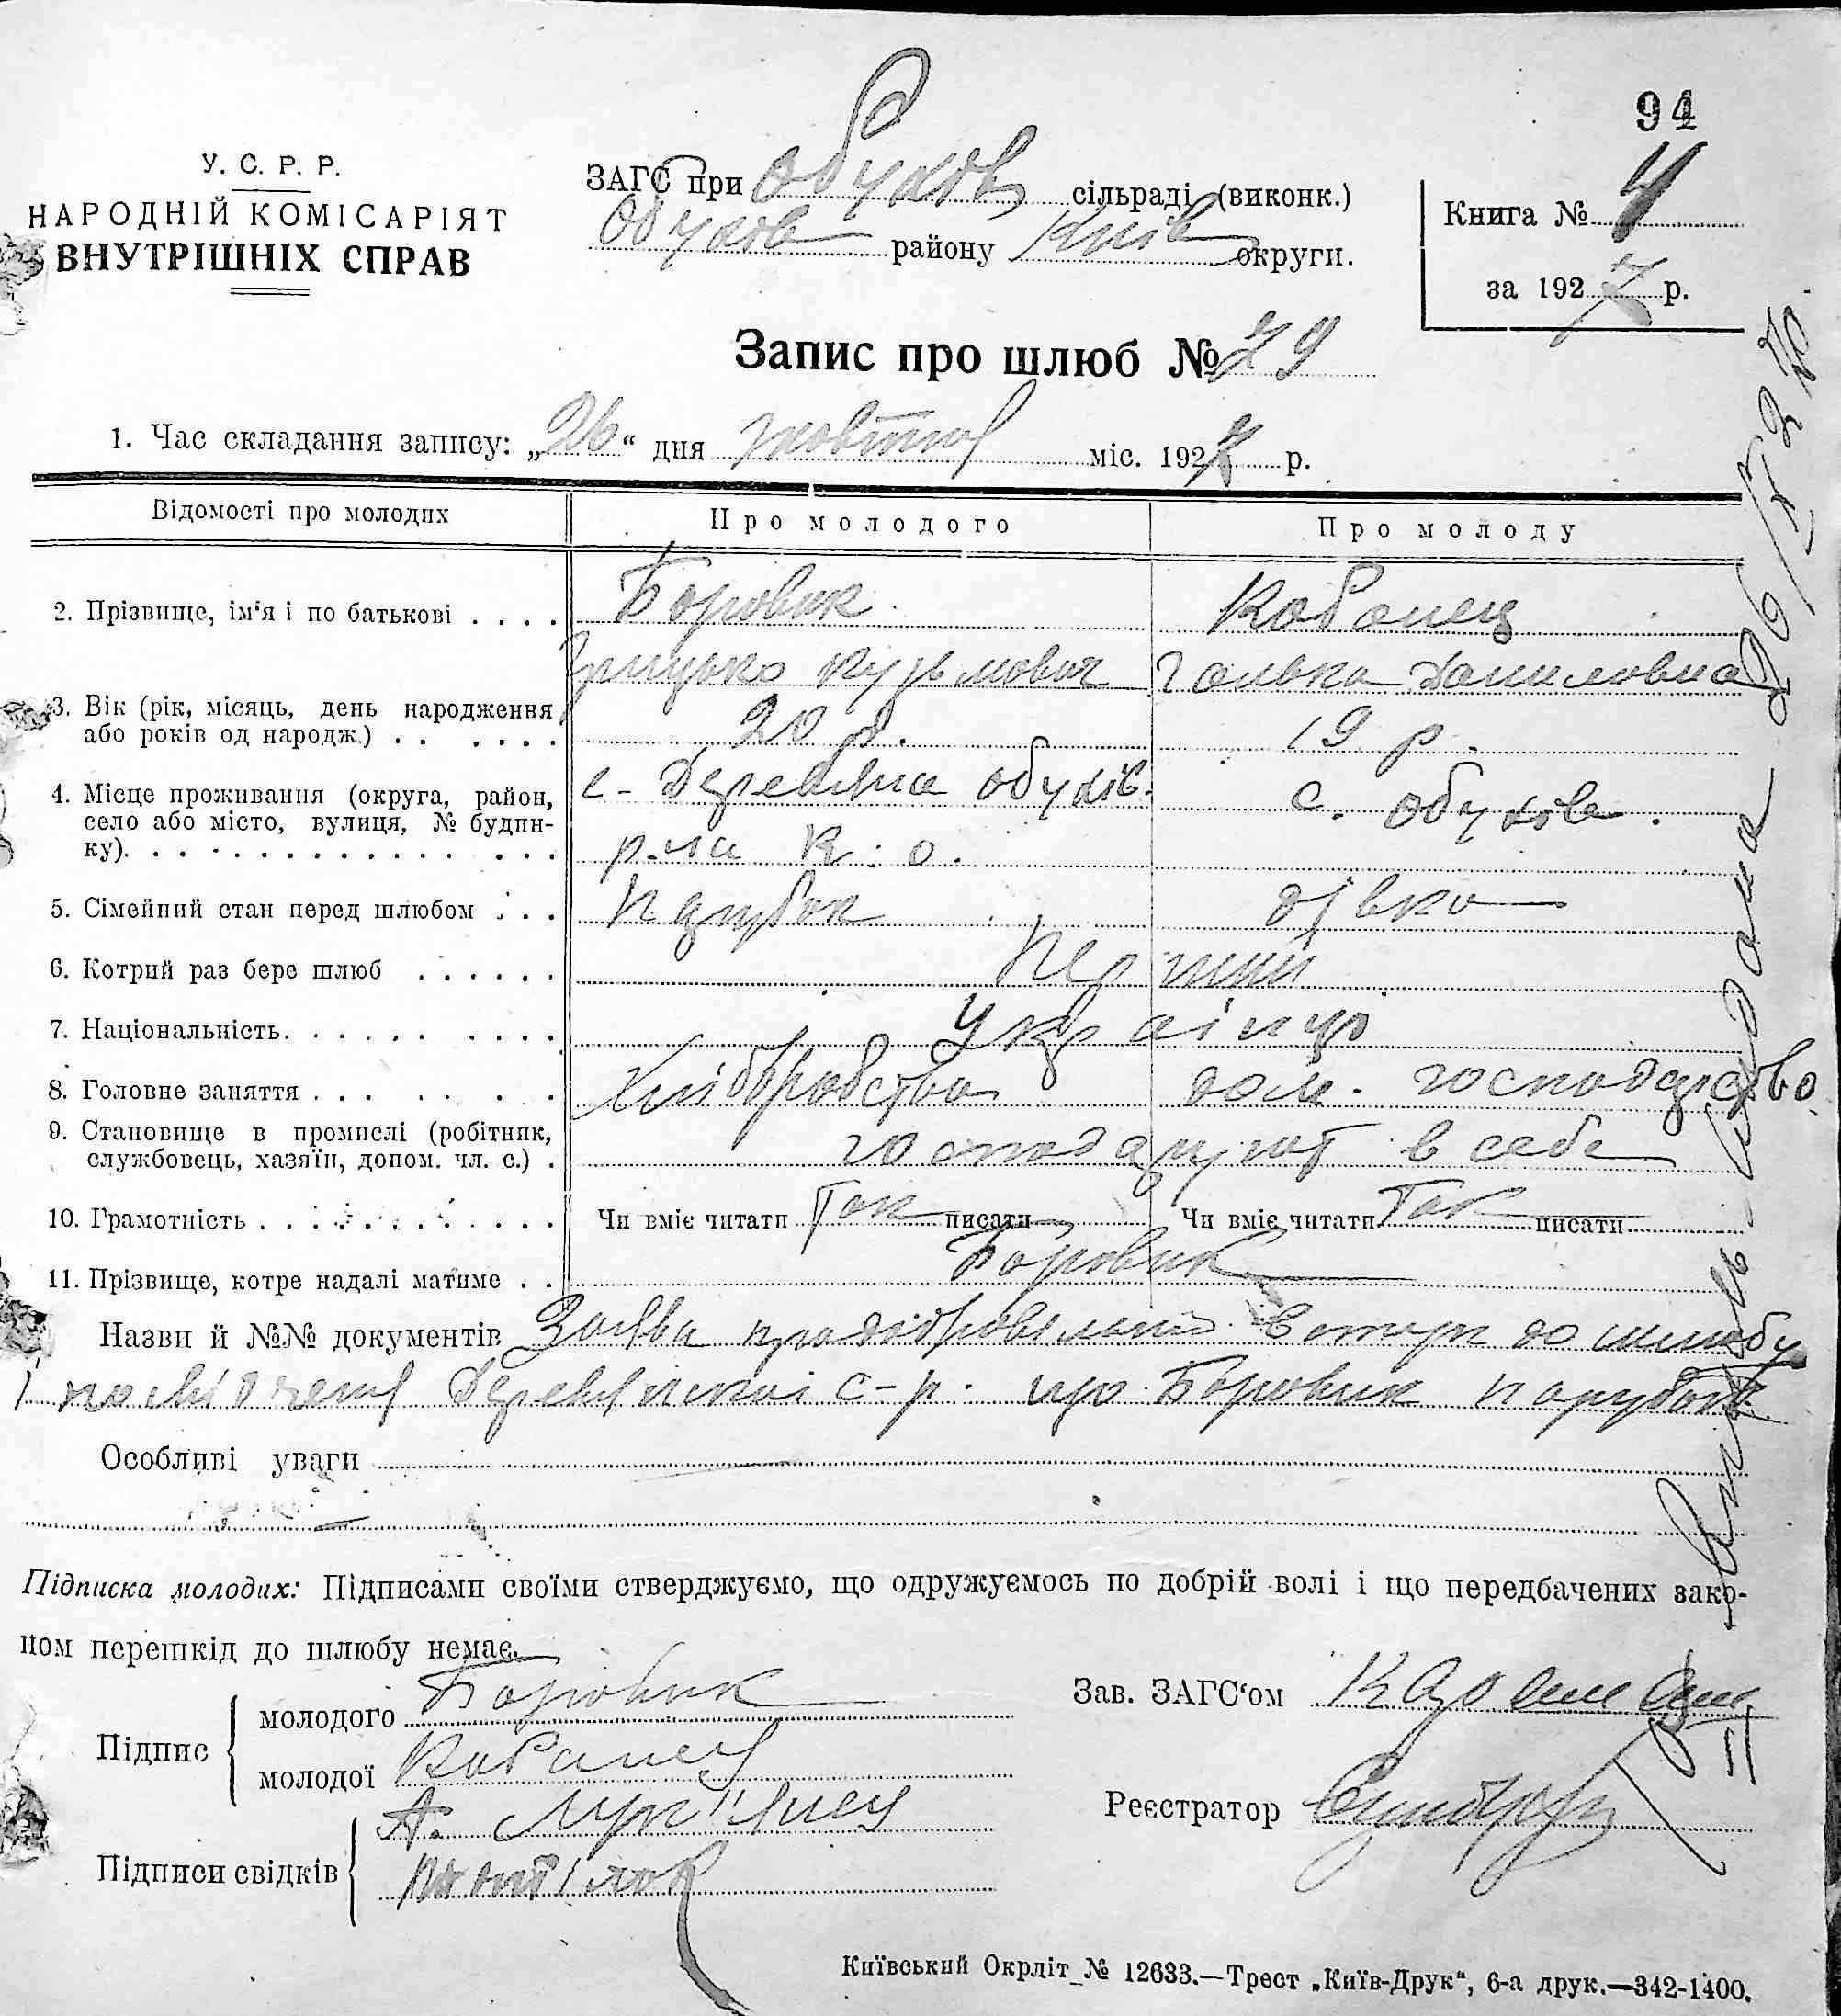 94
У. С. Р. Р.
НАРОДНІЙ КОМІСАРІЯТ
ВНУТРІШНІХ СПРАВ
ЗАГС при Обухов сільраді (виконк.)
Обухов району Київ округи.
Книга № 4
за 1927 р.
Запис про шлюб № 79
1. Час складання запису: „26“ дня жовтня міс. 1927 р.
Відомості про молодих Про молодого Про молоду
2. Прізвище, ім‘я і по батькові . . . . Боровик Кобанец
Грицько Кузьмович Галька Даниловна
3. Вік (рік, місяць, день народження
або років од народж.) . . . . . . 20 р. 19 р.
4. Місце проживання (округа, район,
село або місто, вулиця, № будин-
ку). . . . . . . . . . . . . . . .
с. Деревяна Обухів.
р-на К. о.
с. Обухов.
5. Сімейний стан перед шлюбом . . . парубок дівка
6. Котрий раз бере шлюб . . . . . . Перший
7. Національність. . . . . . . . . . Українці
8. Головне заняття . . . . . . . Хліборобство дом. господарство
9. Становище в промислі (робітник,
службовець, хазяїн, допом. чл. с.) . господарюют в себе
10. Грамотність . . . . . . . . . . . . Чи вміє читати Так писати Чи вміє читати Так писати
11. Прізвище, котре надалі матиме . . Боровик
Назви й №№ документів Заява про добровільний вступ до шлюбу
і посвідчення Деревянскої с-р. про Боровик парубок
Особливі уваги
Підписка молодих: Підписами своїми стверджуємо, що одружуємось по добрій волі і що передбачених зако-
ном перешкід до шлюбу немає.
Підпис
молодого Боровик
молодої Кобанец
Підписи свідків
А. Лук'янец
Зав. ЗАГС‘ом
Реєстратор
Виписъ видана 26/X 27 р.
Київський Окрліт № 12633.—Трест „Київ-Друк“, 6-а друк.—342-1400.